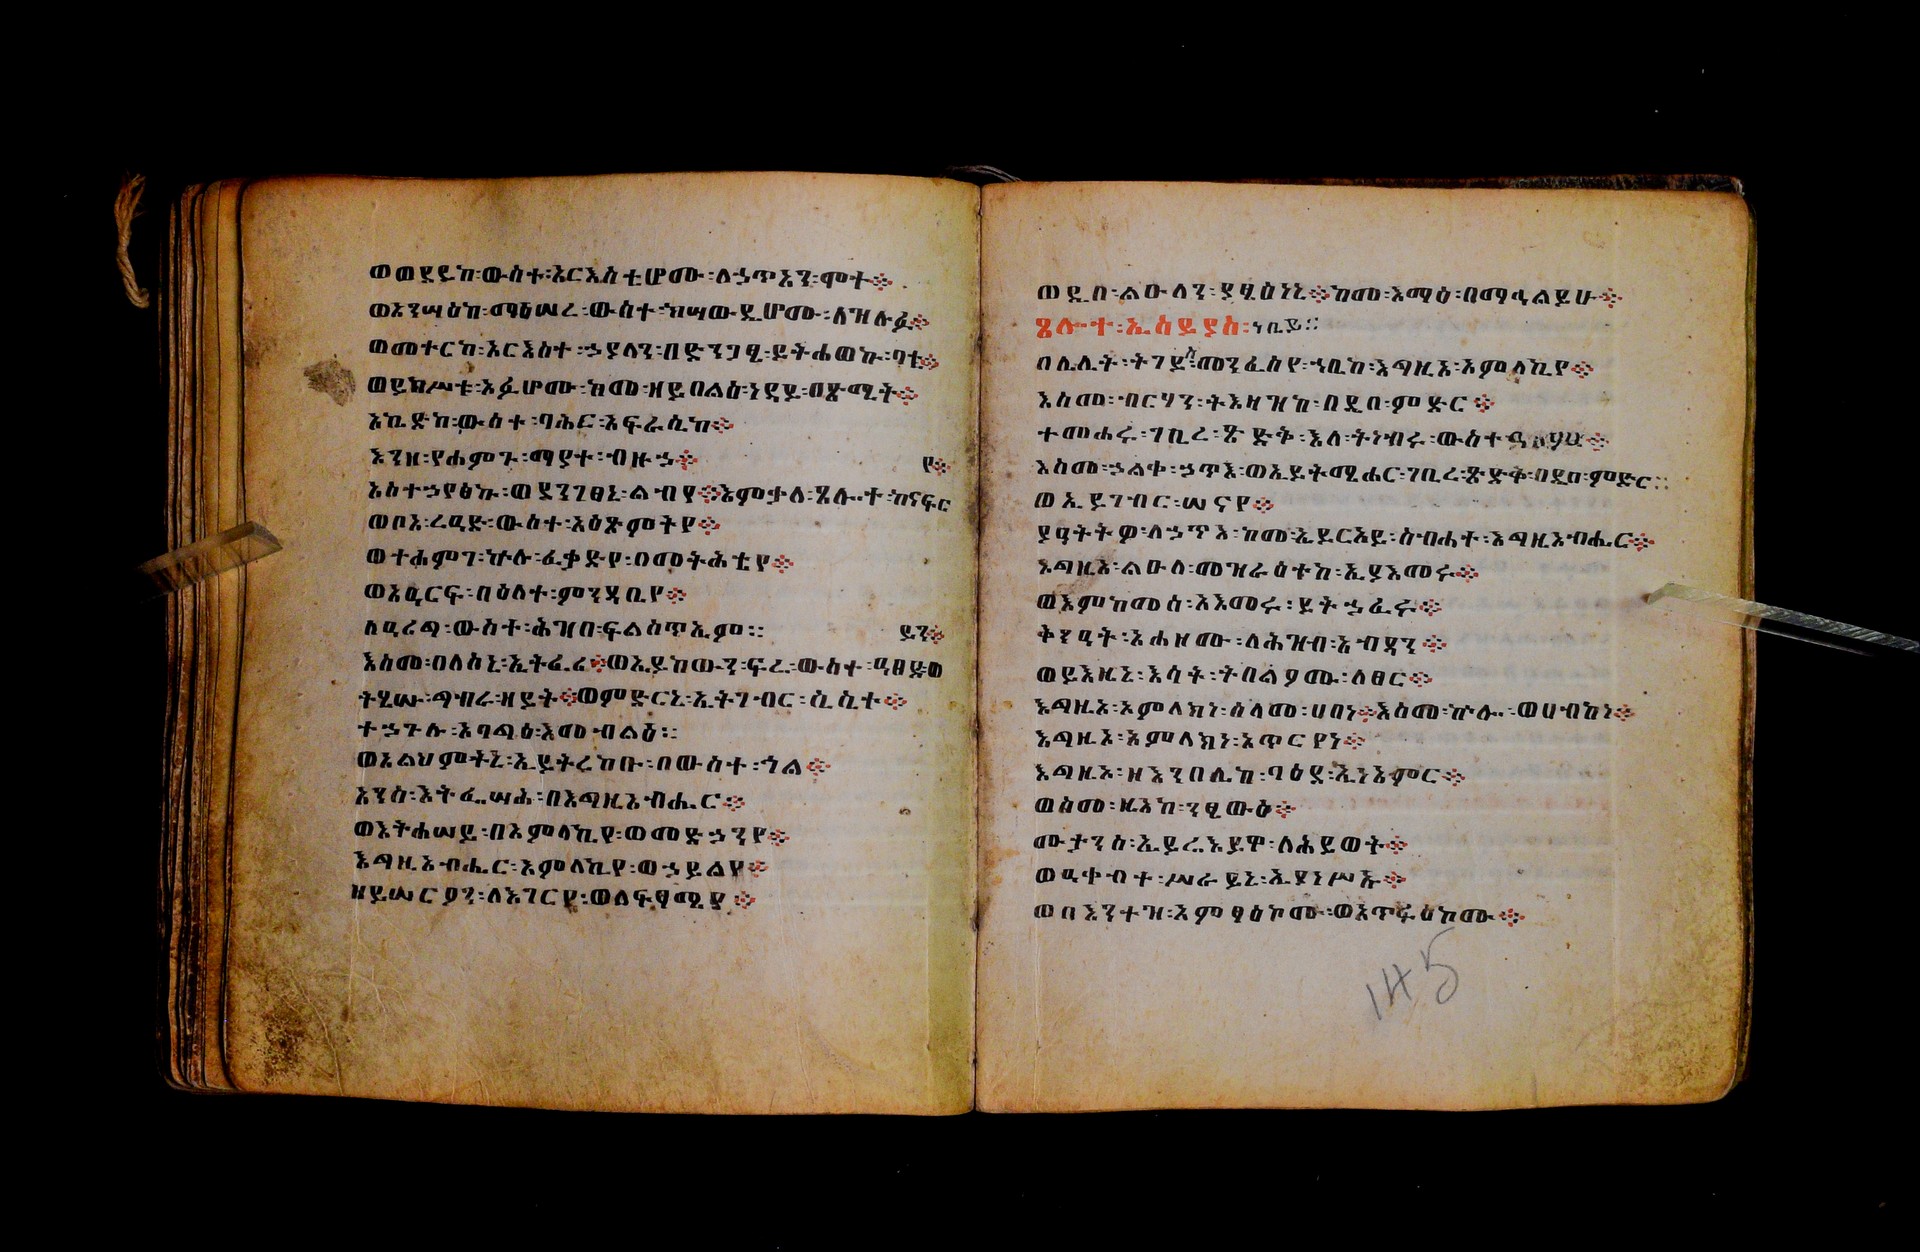 ወወደይከ፡ውስተ፡አርእስቲሆሙ፡ለኃጥአን፡ሞተ፨
ወአንሣዕከ፡ማዕሠረ፡ውስተ፡ክሣውዲሆሙ፡ለዝሉፉ፨
ወመተርከ፡አርእስተ፡ኃያላን፡በድንጋፂ፡ይትሐወኩ፡ባቲ፨
ወይክሥቱ፡አፉሆሙ፡ከመ፡ዘይበልዕ፡ነዳይ፡በጽሚት፨
አኪድከ፡ውስተ፡ባሕር፡አፍራሲከ፨
እንዘ፡የሐምጉ፡ማያተ፡ብዙኃ፨
የ፨
እስተኃየፅኩ፡ወደንገፀኒ፡ልብየ፨እምቃለ፡ጸሎተ፡ከናፍር
ወቦአ፡ረዓድ፡ውስተ፡አዕጽምትየ፨
ወተሐምገ፡ኵሉ፡ፈቃድየ፡በመትሕቲየ፨
ወአዐርፍ፡በዕለተ፡ምንዳቤየ፨
ለዐሪግ፡ውስተ፡ሕዝበ፡ፍልስጥኤም፡፡
ይን፨
እስመ፡በለስኒ፡ኢትፈሪ፨ወኢይከውን፡ፍሬ፡ውስተ፡ዓፀድወ
ትሄሡ፡ግብራ፡ዘይት፨ወምድርኒ፡ኢትገብር፡ሲሲተ፨
ተኃጉሉ፡አባግዕ፡እመ፡ብልዕ፡፡
ወአልህምትኒ፡ኢይትረከቡ፡በውስተ፡ጎል፨
አንሰ፡እትፌሣሕ፡በእግዚአብሔር፨
ወእትሐሠይ፡በአምላኪየ፡ወመድኃንየ፨
እግዚአብሔር፡አምላኪየ፡ወኃይልየ፨
ዘይሠርዖን፡ለእገርየ፡ወለፍፃሜየ፨
ወዲበ፡ልዑላን፡ያፂዕነኒ፨ከመ፡እማዕ፡በማኅልይሁ፨
ጸሎተ፡ኢሳይያስ፡ነቢይ፡፡
በሌሊት፡ትገይስ፡መንፈስየ፡ኀቤከ፡እግዚኦ፡አምላኪየ፨
እስመ፡ብርሃን፡ትእዛዝከ፡በዲበ፡ምድር፨
ተመሐሩ፡ገቢረ፡ጽድቅ፡እለ፡ትነብሩ፡ውስተ፡ዓለም፨
እስመ፡ኃልቀ፡ኃጥእ፡ወኢይትሜሐር፡ገቢረ፡ጽድቅ፡በዲበ፡ምድር፡፡
ወኢይገብር፡ሠናየ፨
ያዓትትዎ፡ለኃጥእ፡ከመ፡ኢይርአይ፡ስብሐተ፡እግዚአብሔር፨
እግዚኦ፡ልዑል፡መዝራዕትከ፡ኢያእመሩ፨
ወእምከመሰ፡አእመሩ፡ይትኃፈሩ፨
ቅንዓት፡አሐዘሙ፡ለሕዝብ፡አብዳን፨
ወይእዜኒ፡እሳት፡ትበልዖሙ፡ለፀር፨
እግዚኦ፡አምላክነ፡ሰላመ፡ሀበነ፨እስመ፡ኵሎ፡ወሀብከነ፨
እግዚኦ፡አምላክነ፡አጥርየነ፨
እግዚኦ፡ዘእንበሌከ፡ባዕደ፡ኢነአምር፨
ወስመ፡ዚአከ፡ንፄውዕ፨
ሙታንሰ፡ኢይሬእይዋ፡ለሕይወት፨
ወዓቀብተ፡ሥራይኒ፡ኢያነሥኡ፨
ወበእንተዝ፡አምፃዕኮሙ፡ወአጥፋዕኮሙ፨
145